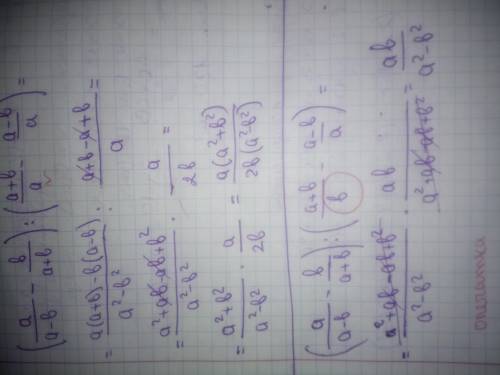 (a/(a-b) - b/(a+b)) : ((a+b)/a - (a-b)/a) =
= (a(a+b)-b(a-b))/(a²-b²) : (a+b-a+b)/a =
= (a²+ab-ab+b²)/(a²-b²) · a/2b =
= (a²+b²)/(a²-b²) · a/2b = a(a²+b²)/2b(a²-b²)
(a/(a-b) - b/(a+b)) : ((a+b)/b - (a-b)/a) =
= (a²+ab-ab+b²)/(a²-b²) · ab/(a²+ab-ab+b²) = ab/(a²-b²)
опечатка